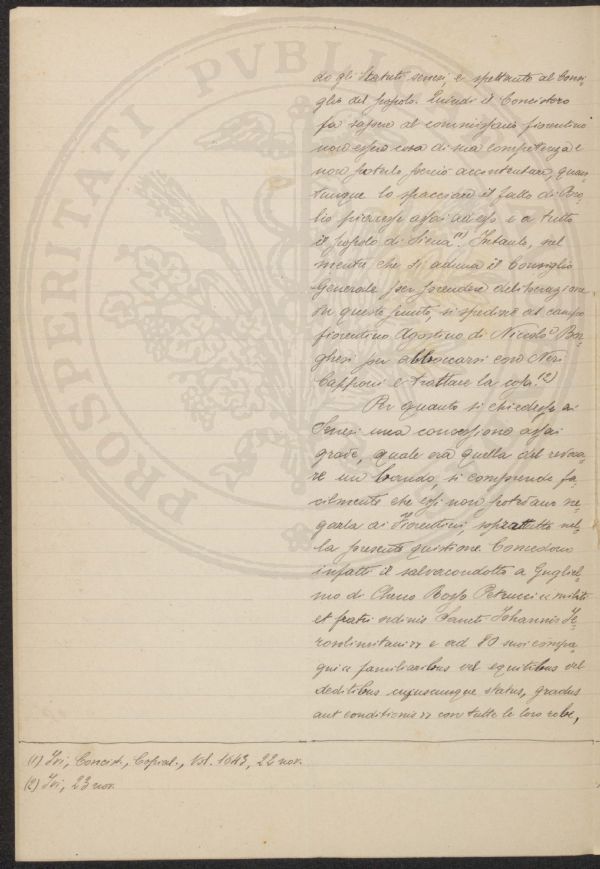 PROSPERITATI PVBLI
do gli Statuti senesi, e spettante al Consi-
glio del popolo. Quindi il Concistoro
fa sapere al commissario fiorentino
non essere cosa di sua competenza e
non poterlo perciò accontentare, quan-
tunque lo spacciare il fatto di
bio piacesse assai ad esso e a tutto
il popolo di Siena (1). Intanto, nel
mentre che si aduna il Consiglio
Generale per prendere deliberazione
su questo punto, si spedisce al campo
fiorentino Agostino di Niccolò Bor-
ghesi per abboccarsi con Neri
Capponi e trattare la cosa. (2)
Per quanto si chiedesse ai
Senesi una concessione assai
grave, quale era quella del revoca-
re un bando, si comprende fa-
cilmente che essi non potevano ne-
garla ai Fiorentini, soprattutto nel-
la presente questione. Concedono
infatti il salvacondotto a Gugliel-
mo di Checo Rosso Petrucci « militi
et fratri ordinis Sancti Johannis Je-
rosolimitani » e ad 80 suoi compa-
gni « familiaribus vel equitibus vel
peditibus cujuscunque status, gradus
aut conditionis » con tutte le loro robe,
(1) Ivi, Concist., Copial., Vol. 1643, 22 nov.
(2) Ivi, 23 nov.